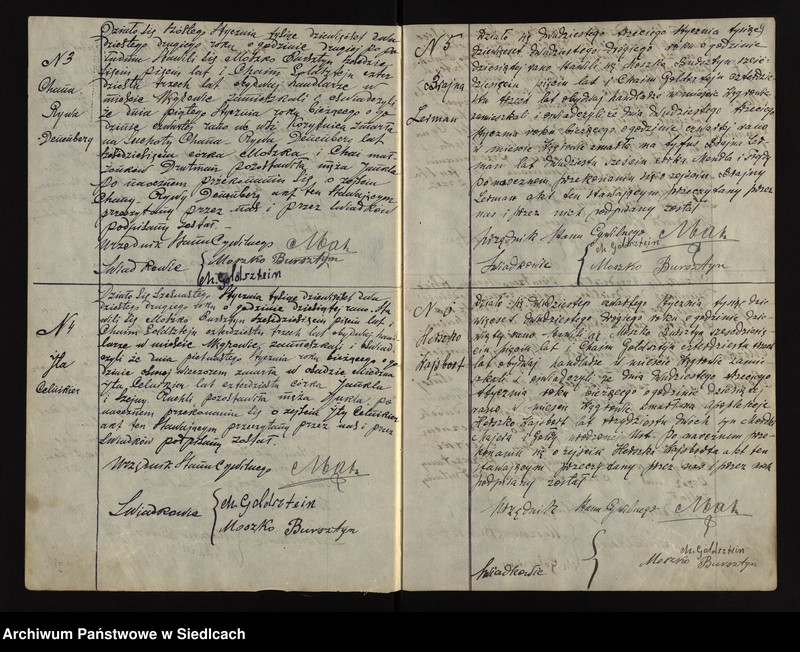 N 3
Chana
Rywa
Denenberg
Działo się szóstego stycznia tysiąc dziewięćset dwu
dziestego drugiego roku o godzinie drugiej po po
łudniu stawili się Moszko Bursztyn
pięciu lat i Chaim Goldsztejn czter
dziestu trzech lat obydwaj handlarze w
mieście Węgrowie zamieszkali i oświadczyli
że dnia piątego stycznia roku bieżącego o go
dzinie czwartej rano we wsi zmarła
na suchoty Chana-Rywa Denenberg lat
córka Moszka i Chai mał
żonków pozostawiła męża Jankla
Po naocznem przekonaniu się o zejściu
Chany Rywy Denenberg akt ten stawającym
przeczytany przez nas i przez świadków
podpisany został.—
Urzędnik Stanu Cywilnego
Świadkowie
Moszko Bursztyn
Ch. Goldsztein
N 4
Jta
Celnikier
Działo się szesnastego stycznia tysiąc dziewięćset dwu
dziestego drugiego roku o godzinie dziesiątej rano. Sta
wili się Moszko Bursztyn sześćdziesięciu pięciu lat i
Chaim Goldsztejn czterdziestu trzech lat obydwaj hand
larze w mieście Węgrowie zamieszkali i oświad
czyli że dnia piętnastego stycznia roku bieżącego o go
dzinie ósmej wieczorem zmarła w
Jta lat czterdzieści córka Jankla
i pozostawiła męża po
naocznem przekonaniu się o zejściu Jty Celnikier
akt ten stawającym przeczytany przez nas i przez
świadków podpisany został.
Urzędnik Stanu Cywilnego
Świadkowie
Ch. Goldsztein
Moszko Bursztyn
N 5
Brajna
Lerman
Działo się dwudziestego trzeciego stycznia tysiąc
dziewięćset dwudziestego drugiego roku o godzinie
dziesiątej rano stawili się Moszko Bursztyn sześć
dziesięciu pięciu lat i Chaim Goldsztejn czterdzie
stu trzech lat obydwaj handlarze w mieście Węgrowie
zamieszkali i oświadczyli że dnia dwudziestego trzeciego
stycznia roku bieżącego o godzinie czwartej rano
w mieście Węgrowie zmarła na tyfus Brajna Ler
man lat dwadzieścia sześć córka Mendla i
po naocznem przekonaniu się o zejściu Brajny
Lerman akt ten stawającym przeczytany przez
nas i przez nich podpisany został
Urzędnik Stanu Cywilnego
Świadkowie
Ch. Goldsztein
Moszko Bursztyn
N 6
Herszko
Hajsbort
Działo się dwudziestego czwartego stycznia tysiąc dzie
więćset dwudziestego drugiego roku o godzinie dzie
wiątej rano. Stawili się Moszko Bursztyn sześćdziesię
ciu pięciu lat i Chaim Goldsztyn czterdziestu trzech
lat obydwaj handlarze w mieście Węgrowie zamie
szkali i oświadczyli że dnia dwudziestego trzeciego
stycznia roku bieżącego o godzinie dziesiątej
rano w mieście Węgrowie zmarł na
Herszko Hajsbort lat trzydziestu dwóch syn
i Gołdy Po naocznem prze
konaniu się o zejściu Herszki Hajsborta akt ten
stawającym przeczytany przez nas i przez
podpisany został
Urzędnik Stanu Cywilnego
Świadkowie
Ch. Goldsztein
Moszko Bursztyn
Archiwum Państwowe w Siedlcach